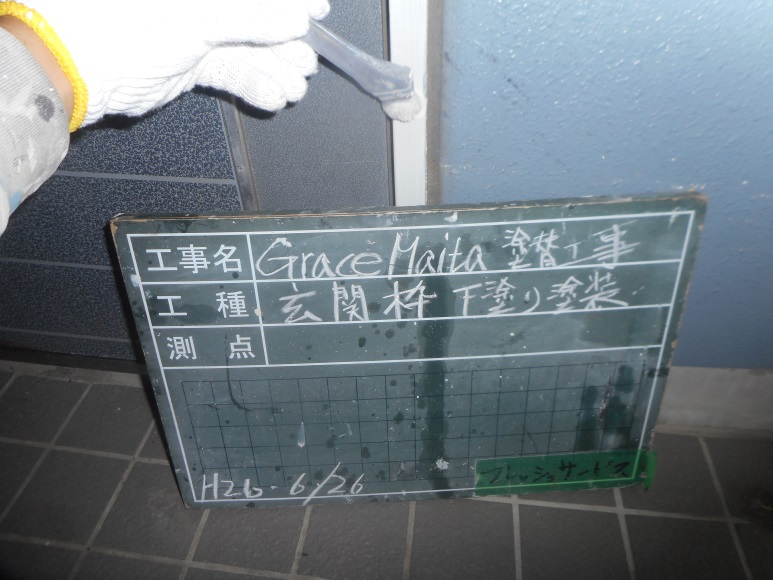 工事名 Grace Maita 塗替工事
工種 玄関枠 下塗り塗装
測点
H26・6/26
フレッシュサービス